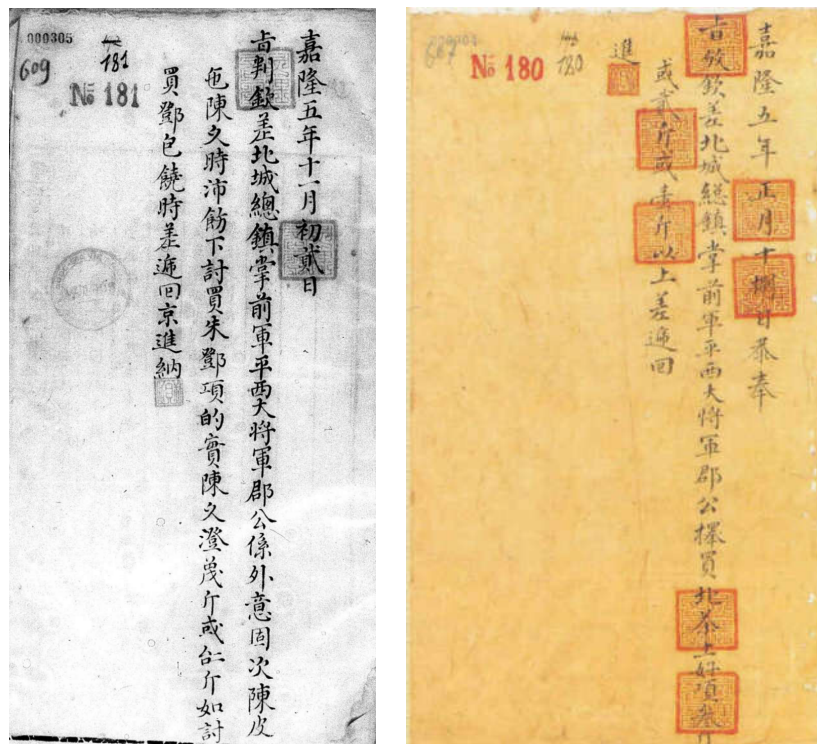 000305
181
609
No 181
嘉隆五年十一月初貳日
旨判欽差北城總鎮掌前軍平西大將軍郡公係外意固次陳皮
陳久時沛飭下討買朱鄧項的實陳久澄斤或斤如討
買鄧包饒時差遞回京進納
No 180
180
嘉隆五年正月十捌日恭奉
旨欽差北城總鎮掌前軍平西大將軍郡公擇買北茶上好項叁斤
或貳斤或壹斤以上差遞回
進